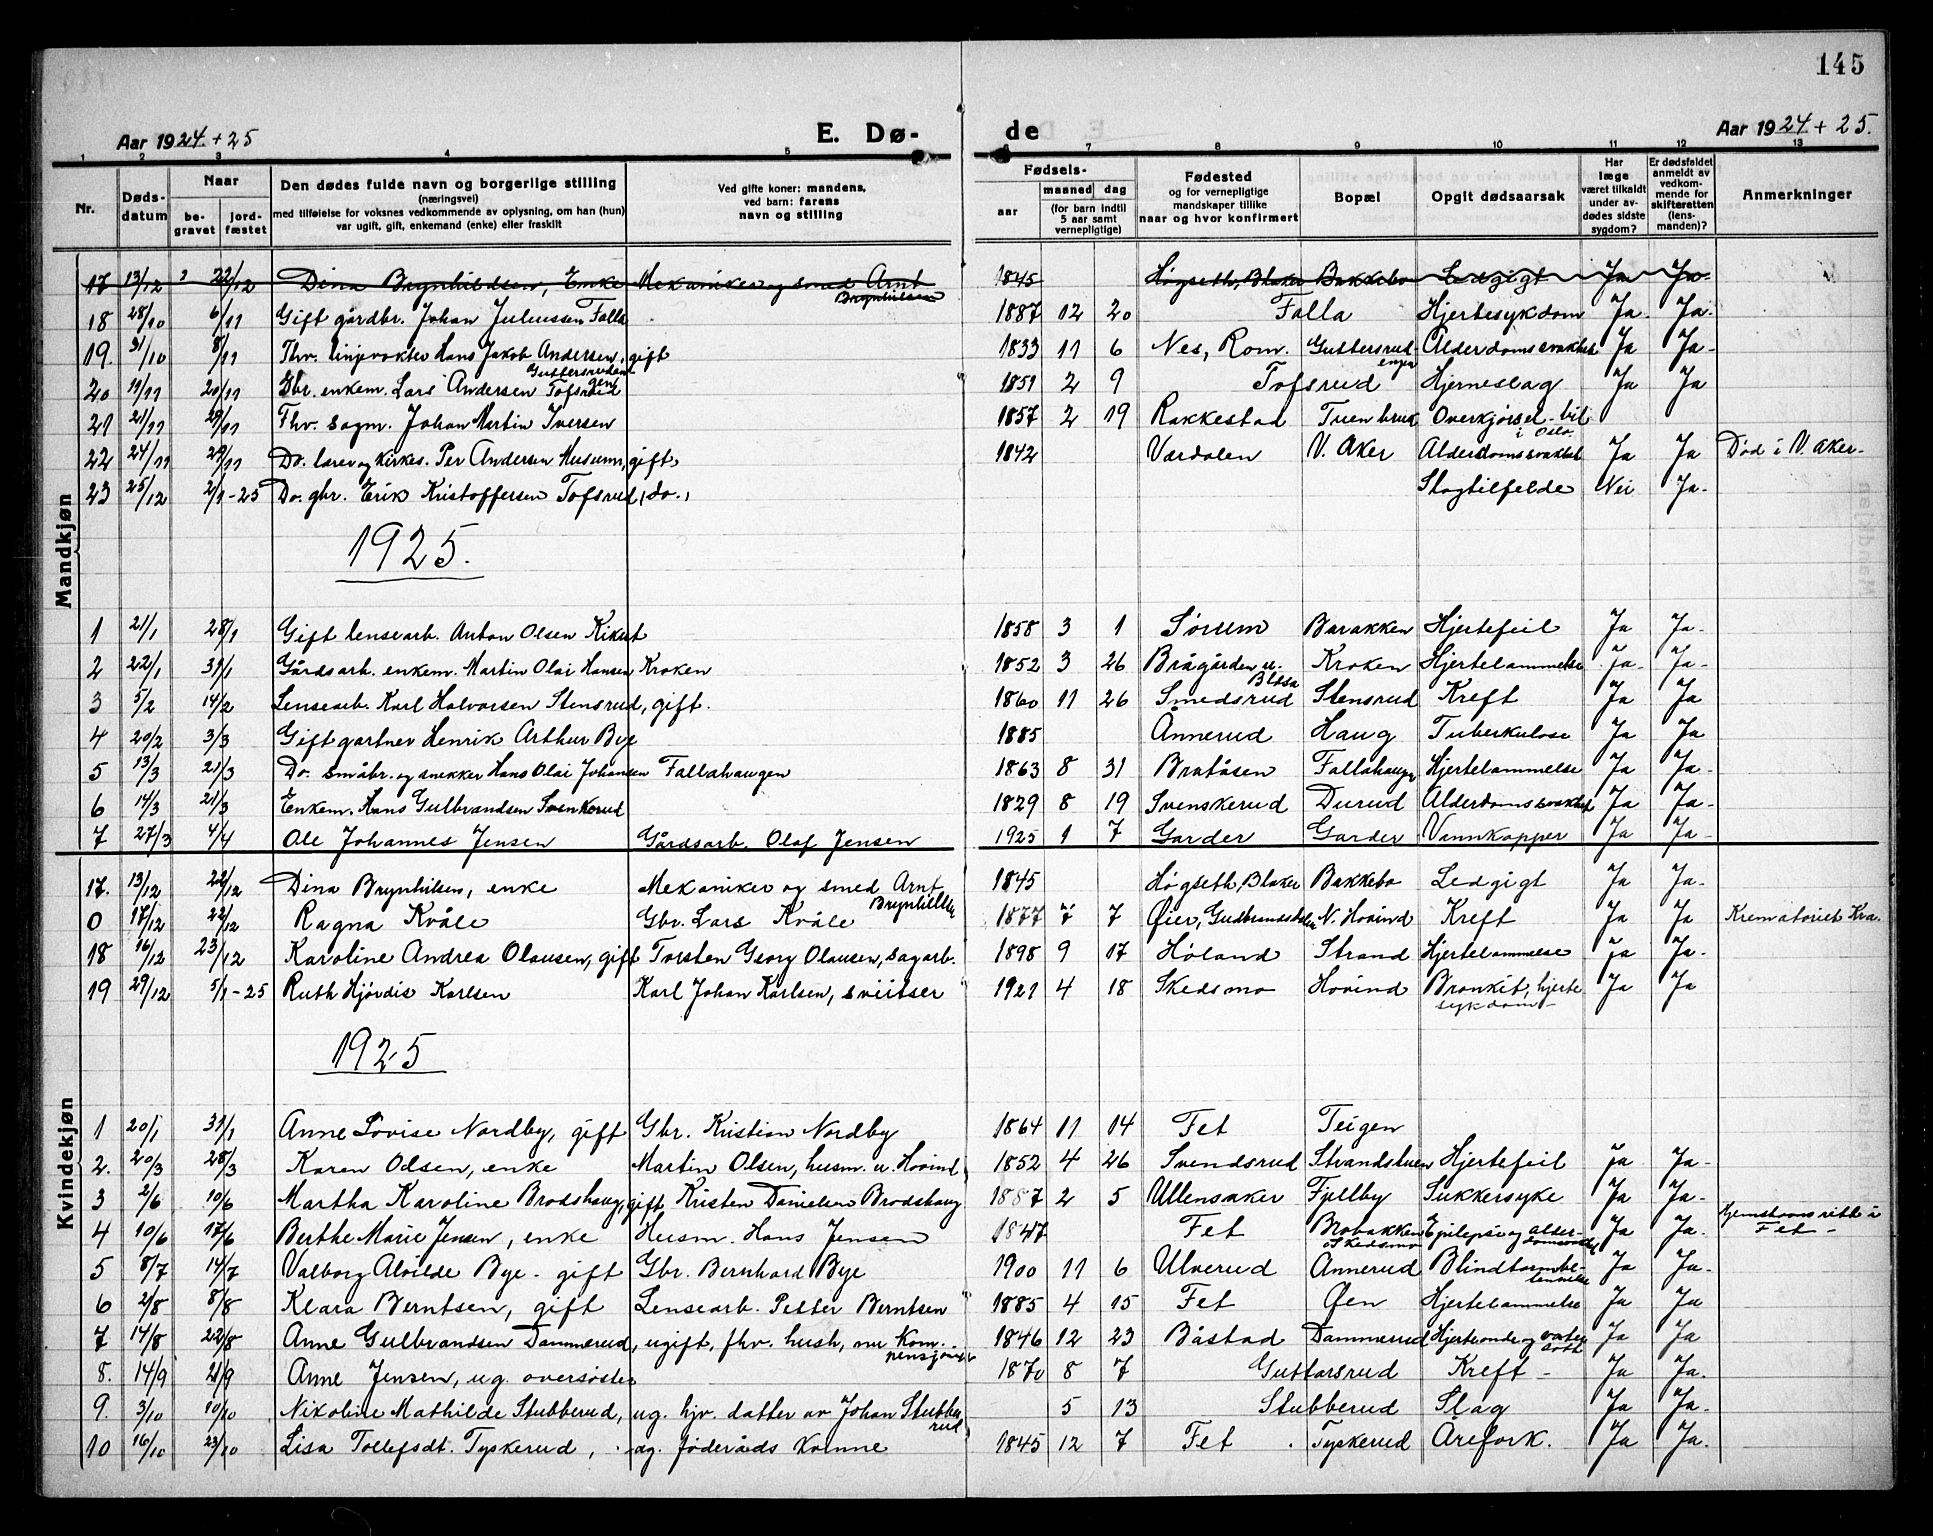 145
Aar 1924 + 25
E. Dø-
de
Aar 1924 + 25.
1 2 3 4 5 6 7 8 9 10 11 12 13
Nr.
Døds-
datum
Naar
be-
gravet
jord-
fæstet
Den dødes fulde navn og borgerlige stilling
(næringsvei)
med tilføielse for voksnes vedkommende av oplysning, om han (hun)
var ugift, gift, enkemand (enke) eller fraskilt
Ved gifte koner: mandens,
ved barn: farens
navn og stilling
Fødsels-
aar
maaned
dag
(for barn indtil
5 aar samt
vernepligtige)
Fødested
og for vernepligtige
mandskaper tillike
naar og hvor konfirmert
Bopæl
Opgit dødsaarsak
Har
læge
været tilkaldt
under av-
dødes sidste
sygdom?
Er dødsfaldet
anmeldt av
vedkom-
mende for
skifteretten
(lens-
manden)?
Anmerkninger
Mandkjøn
17 13/12 22/12 Dina Brynhildsen, Enke Mekaniker og smed Arnt Brynhilsen 1845 Høgseth, Blaker Bakkebo Ledgigt Ja Ja
18 28/10 6/11 Gift gårdbr. Johan Juliussen Falla 1887 12 20 Falla Hjertesykdom Ja Ja.
19. 31/10 8/11 Fhv. linjevokter Hans Jakob Andersen, gift 1833 11 6 Nes, Rom. Guttersrud- Alderdomssvakhet Ja Ja-
20 19/11 20/11 Gbr. enkem. Lars Andersen Tofsrud 1851 2 9 Tofsrud Hjerneslag Ja Ja
21 21/11 29/11 Fhv. sagm. Johan Martin Iversen 1857 2 19 Rakkestad Tuen bruk Overkjørsel-bil i Oslo.
22 24/11 29/11 Do. lærer og kirkes. Per Andersen Musum, gift 1842 Værdalen V. Aker Alderdomssvakhet Ja Ja Død i V. Aker-
23 25/12 2/1-25 Do. gbr. Erik Kristoffersen Tofsrud, (do.) Slagtilfelde Nei Ja.
1925.
1 21/1 28/1 Gift lensearb. Anton Olsen Kikut 1858 3 1 Sørum Barakken Hjertefeil Ja Ja-
2 22/1 31/1 Gårdsarb. enkem. Martin Olai Hansen Kroken 1852 3 26 Brågården u. Kroken Hjertelammelse Ja- Ja-
3 5/2 14/2 Lensearb. Karl Halvorsen Stensrud, gift. 1860 11 26 Smedsrud Stensrud Kreft Ja Ja
4 20/2 3/3 Gift gartner Henrik Arthur Bye 1885 Ånnerud Haug Tuberkulose Ja Ja
5 13/3 21/3 Do. småbr. og snekker Hans Olai Johansen Fallahaugen 1863 8 31 Bratåsen Fallahaugen Hjertelammelse Ja Ja-
6 14/3 21/3 Enkem. Hans Gulbrandsen Svenkerud 1829 8 19 Svenskerud Durud Alderdomssvakhet Ja Ja-
7 27/3 4/4 Ole Johannes Jensen Gårdsarb. Olaf Jensen 1925 1 7 Garder Garder Vannkopper Ja Ja-
Kvindekjøn
17. 13/12 22/12 Dina Brynhilsen, enke Mekaniker og smed Arnt Brynhilsen 1845 Høgseth, Blaker Bakkebo Ledgigt Ja Ja-
0 17/12 22/12 Ragna Kvåle Gbr. Lars Kvåle 1877 7 7 Øier, Gudbrandsdalen N. Hovind Kreft Ja Ja Krematoriet Kra.
18 16/12 23/12 Karoline Andrea Olausen, gift Torsten Georg Olausen, sagarb. 1898 9 17 Høland Strand Hjertelammelse Ja Ja-
19 29/12 5/1-25 Ruth Hjördis Karlsen Karl Johan Karlsen, sveitser 1921 4 18 Skedsmo Hovind Bronkit, hjerte sykdom- Ja Ja
1925
1 20/1 31/1 Anne Lovise Nordby, gift Gbr. Kristian Nordby 1864 11 14 Fet Teigen
2. 20/3 28/3 Karen Olsen, enke Martin Olsen, husm. u. Hovind 1852 4 26 Svendsrud Strandstuen Hjertefeil Ja Ja-
3 2/6 10/6 Martha Karoline Brodshaug, gift Kristen Danielsen Brodshaug 1887 2 5 Ullensaker Fjellby Sukkersyke Ja Ja-
4 10/6 17/6 Berthe Marie Jensen, enke Husm. Hans Jensen 1847 Fet Brobakken Skedsmo Epilepsi og alderdomssvakhet Ja Ja. Hjemstavnsrett i Fet-
5 8/7 14/7 Valborg Alvilde Bye. gift Gbr. Bernhard Bye 1900 11 6 Ulverud Annerud Blindtarmbetennelse Ja Ja-
6 2/8 8/8 Klara Berntsen, gift Lensearb. Petter Berntsen 1885 4 15 Fet Øen Hjertelammelse Ja Ja
7 14/8 22/8 Anne Gulbrandsen Dammerud, ugift, fhv. hush, nu kom. pensjonist 1846 12 23 Båstad Dammerud Hjerteonde og vatersott Ja Ja
8. 14/9 21/9 Anne Jensen, ug. oversøster 1870 8 7 Guttersrud Kreft - Ja Ja.
9. 3/10 10/10 Nikoline Mathilde Stubberud, ug. hjv. datter av Johan Stubberud, 5 13 Stubberud Slag Ja Ja-
10 16/10 23/10 Lisa Tollefsdt. Tyskerud, ug. föderåds kvinne 1845 12 7 Fet Tyskerud Årefork. Ja Ja.